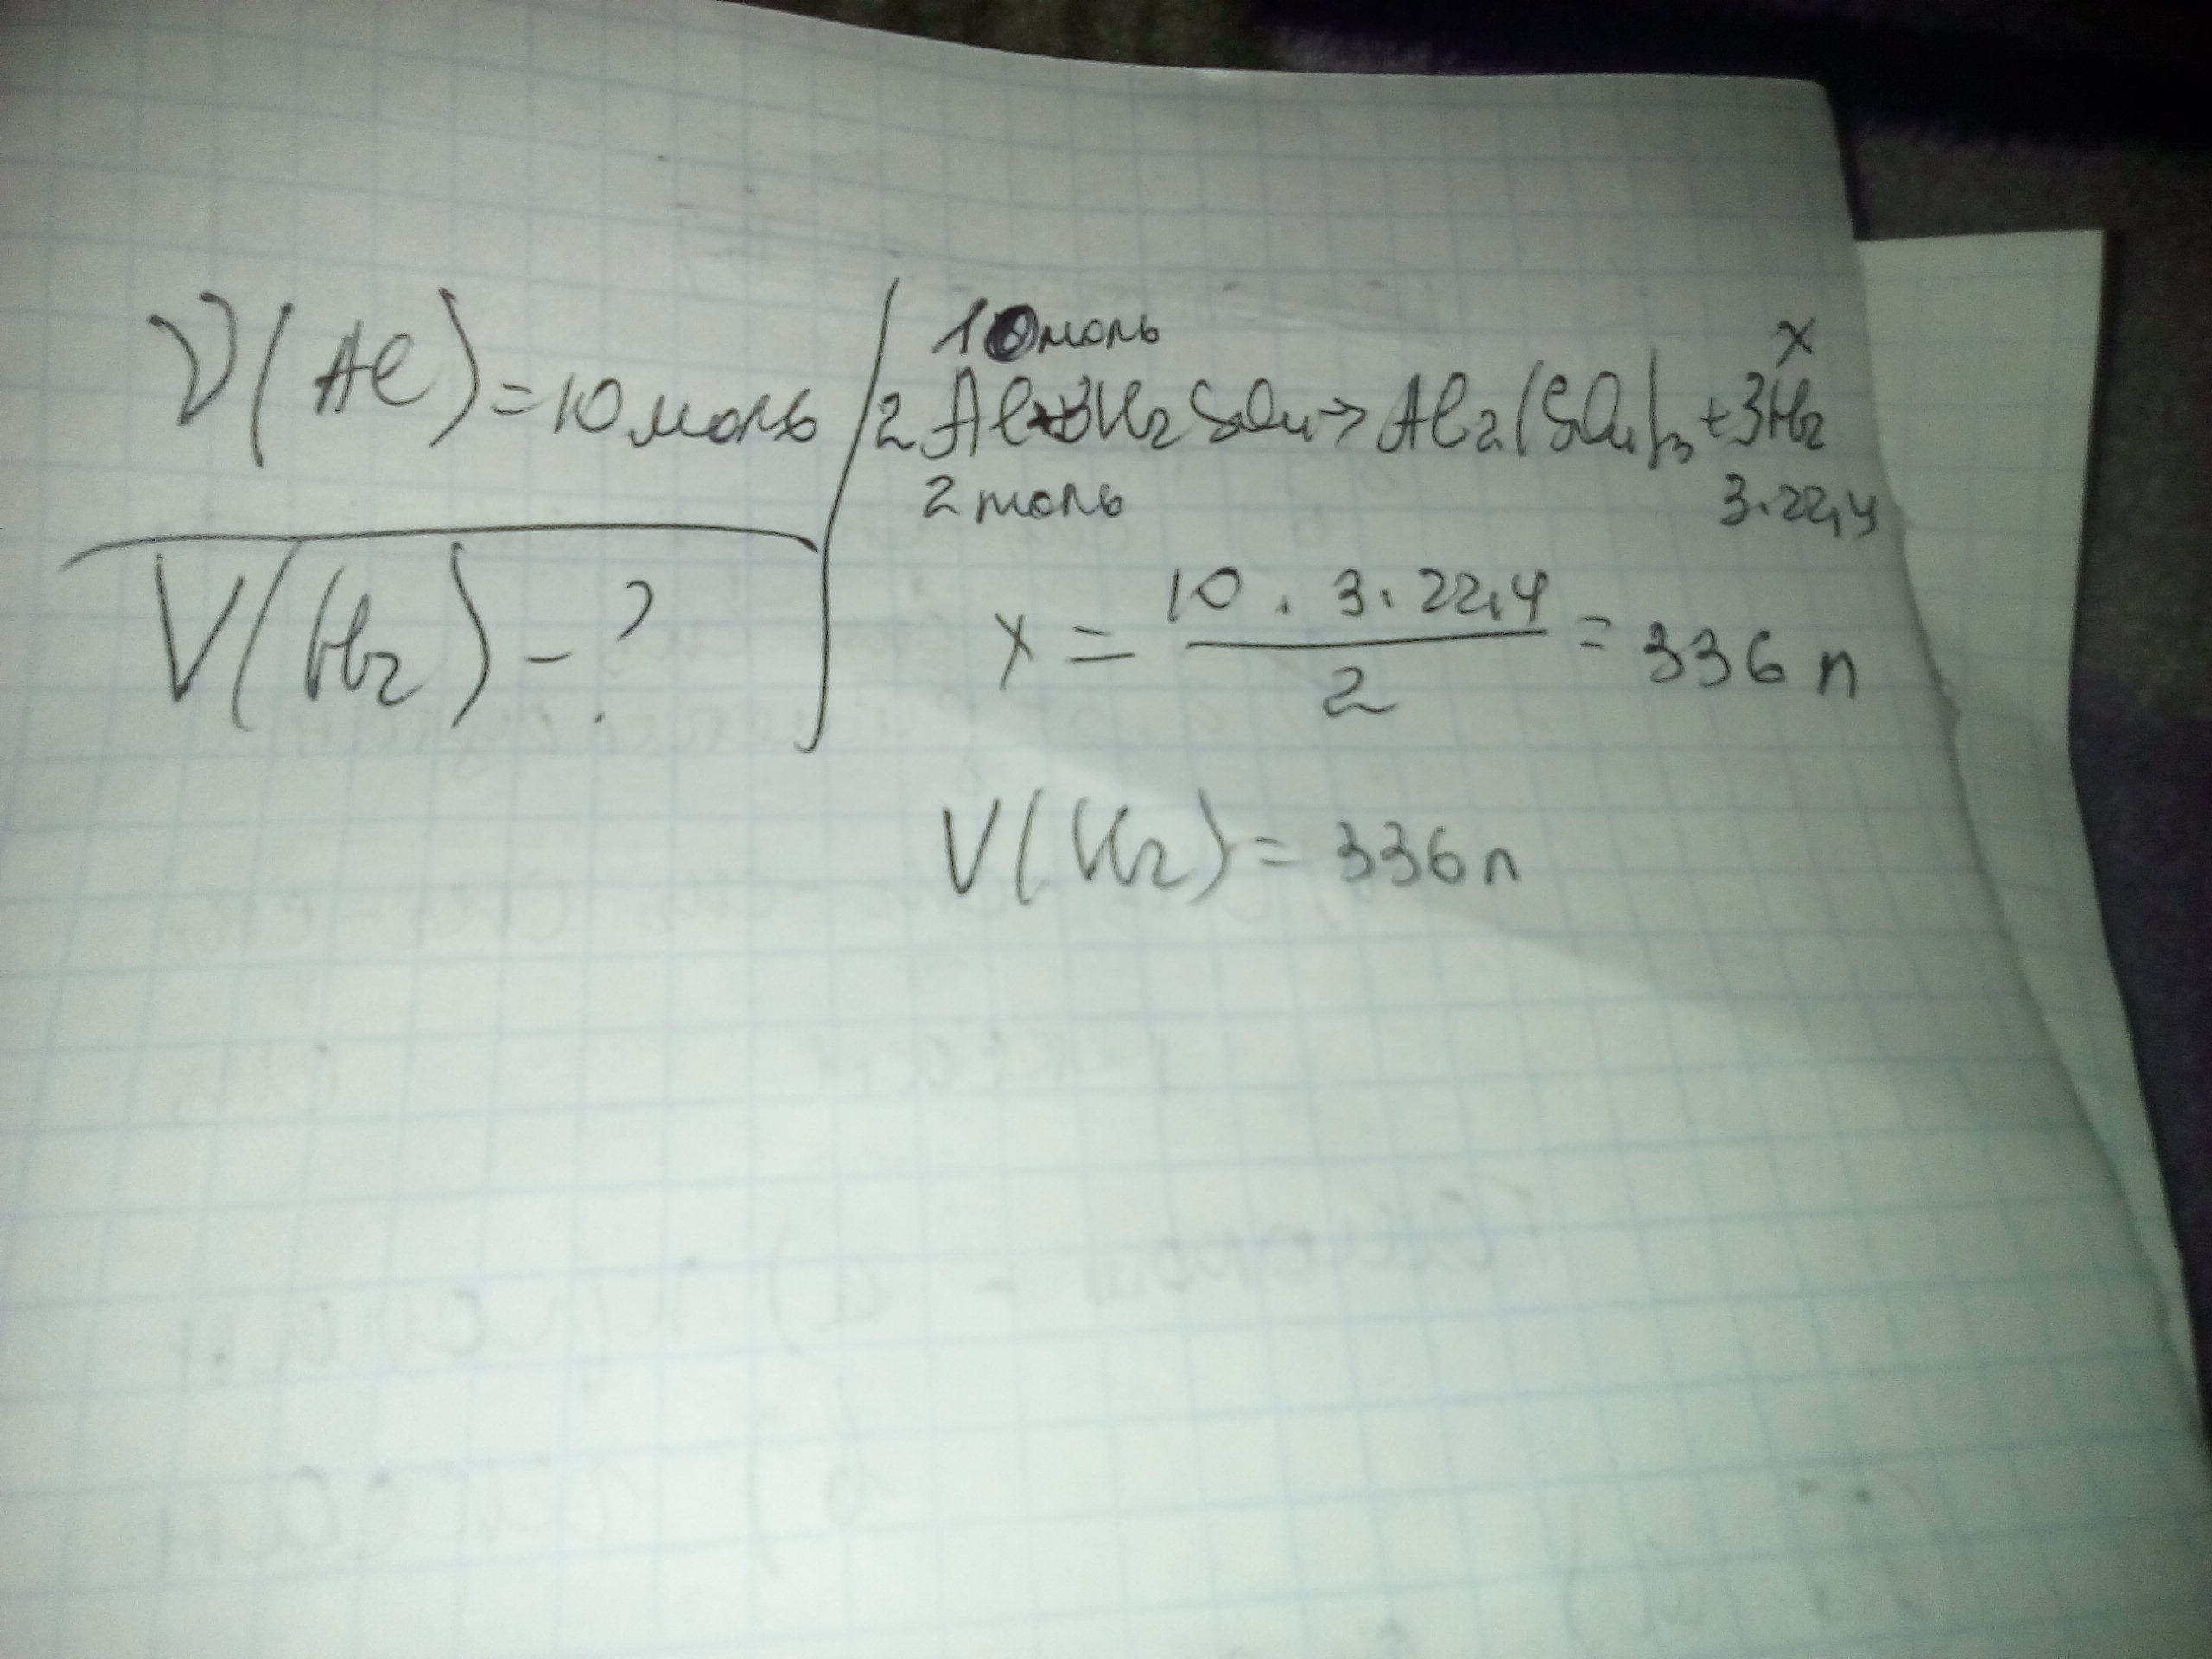 ν(Al) = 10 моль
V(H₂) - ?
10 моль x
2Al + 3H₂SO₄ → Al₂(SO₄)₃ + 3H₂
2 моль 3·22,4
x = 10 · 3 · 22,4 / 2 = 336 л
V(H₂) = 336 л